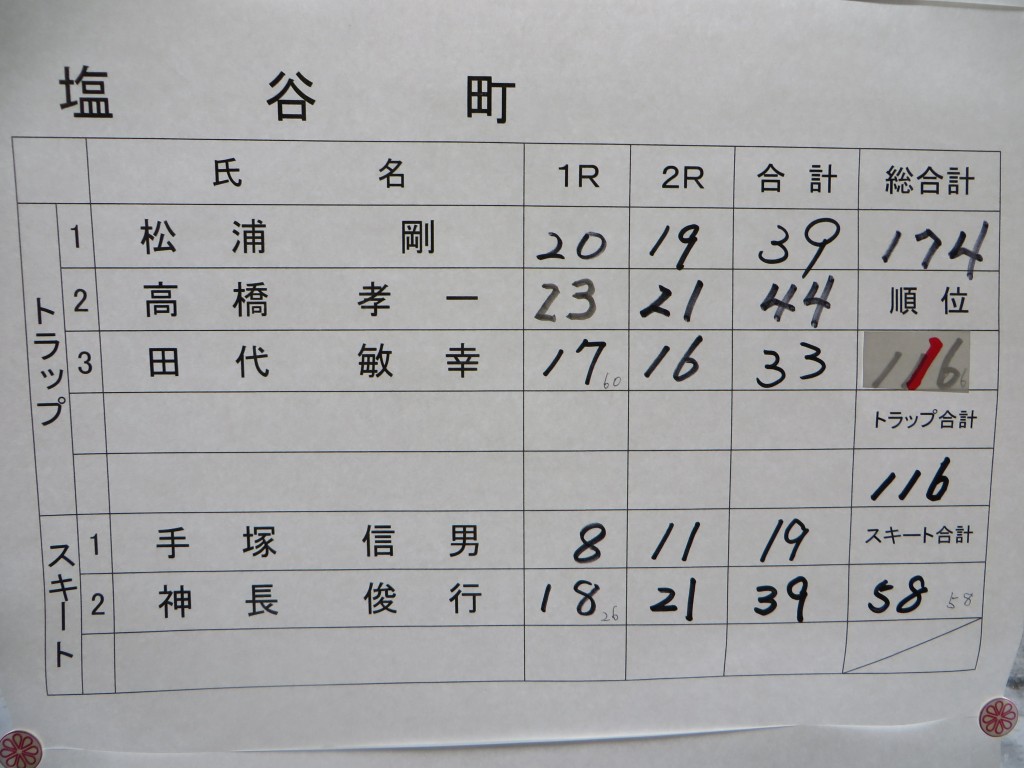 塩谷町
氏名 1R 2R 合計 総合計
トラップ
1 松浦 剛 20 19 39 174
2 高橋 孝一 23 21 44 順位
3 田代 敏幸 17 60 16 33 116 1
トラップ合計
116
スキート
1 手塚 信男 8 11 19 スキート合計
2 神長 俊行 18 26 21 39 58 58